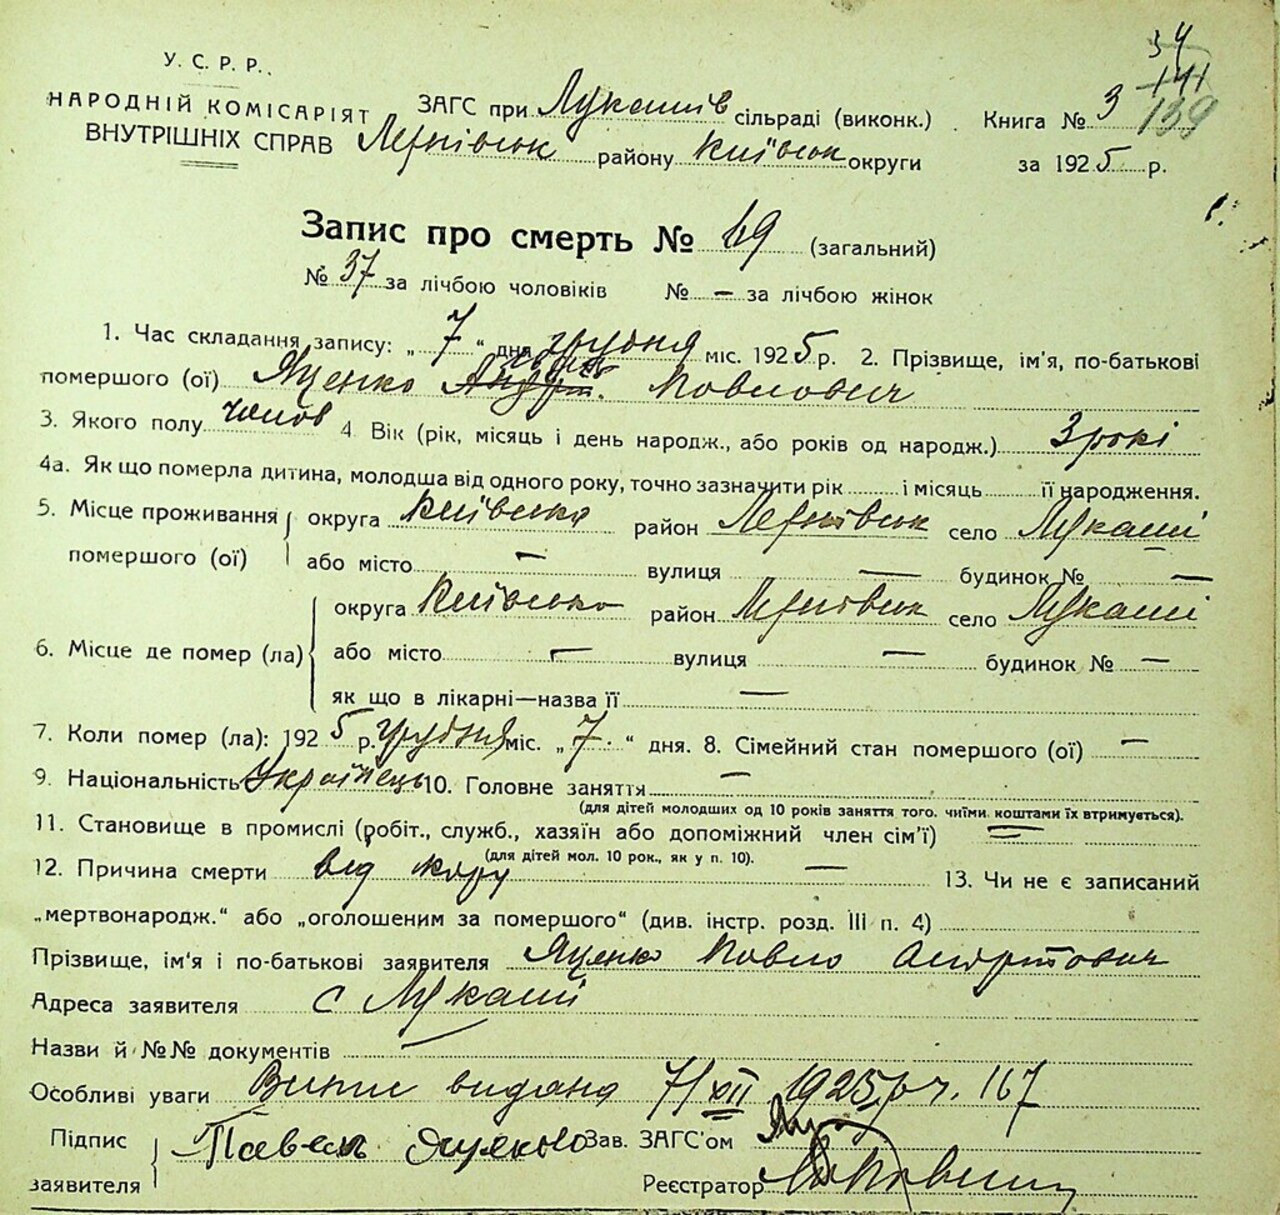 34
141
139
У. С. Р. Р.
НАРОДНІЙ КОМІСАРІЯТ
ВНУТРІШНІХ СПРАВ
ЗАГС при Лукашів сільраді (виконк.) Книга № 3
районy Київськ округи за 1925 р.
Запис про смерть № 69 (загальний)
№ 37 за лічбою чоловіків № — за лічбою жінок
1. Час складання запису: „ 7 “ дня грудня міс. 1925 р. 2. Прізвище, ім'я, по-батькові
помершого (ої) Яценко Павлович
3. Якого полу чолов 4. Вік (рік, місяць і день народж., або років од народж.) 3 рокі
4а. Як що померла дитина, молодша від одного року, точно зазначити рік і місяць її народження.
5. Місце проживання помершого (ої) округа Київська район село Лукаші
або місто — вулиця — будинок № —
6. Місце де помер (ла) округа Київська район село Лукаші
або місто — вулиця — будинок № —
як що в лікарні—назва її —
7. Коли помер (ла): 1925 р. грудня міс. „ 7 “ дня. 8. Сімейний стан помершого (ої) —
9. Національність Українець 10. Головне заняття —
(для дітей молодших од 10 років заняття того. чиїми коштами їх втримується).
11. Становище в промислі (робіт., служб., хазяїн або допоміжний член сім'ї) =
(для дітей мол. 10 рок., як у п. 10).
12. Причина смерти від кору — 13. Чи не є записаний
„мертвонародж.“ або „оголошеним за помершого“ (див. інстр. розд. III п. 4)
Прізвище, ім'я і по-батькові заявителя Яценко Павло
Адреса заявителя с Лукаші
Назви й №№ документів —
Особливі уваги видана 7/XII 1925 р ч. 167
Підпис заявителя Павел Зав. ЗАГС'ом
Реєстратор